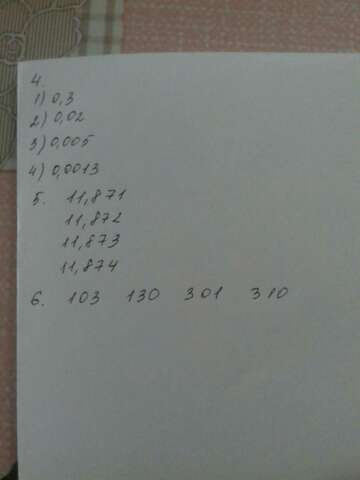 4.
1) 0,3
2) 0,02
3) 0,005
4) 0,0013
5. 11,871
11,872
11,873
11,874
6. 103 130 301 310